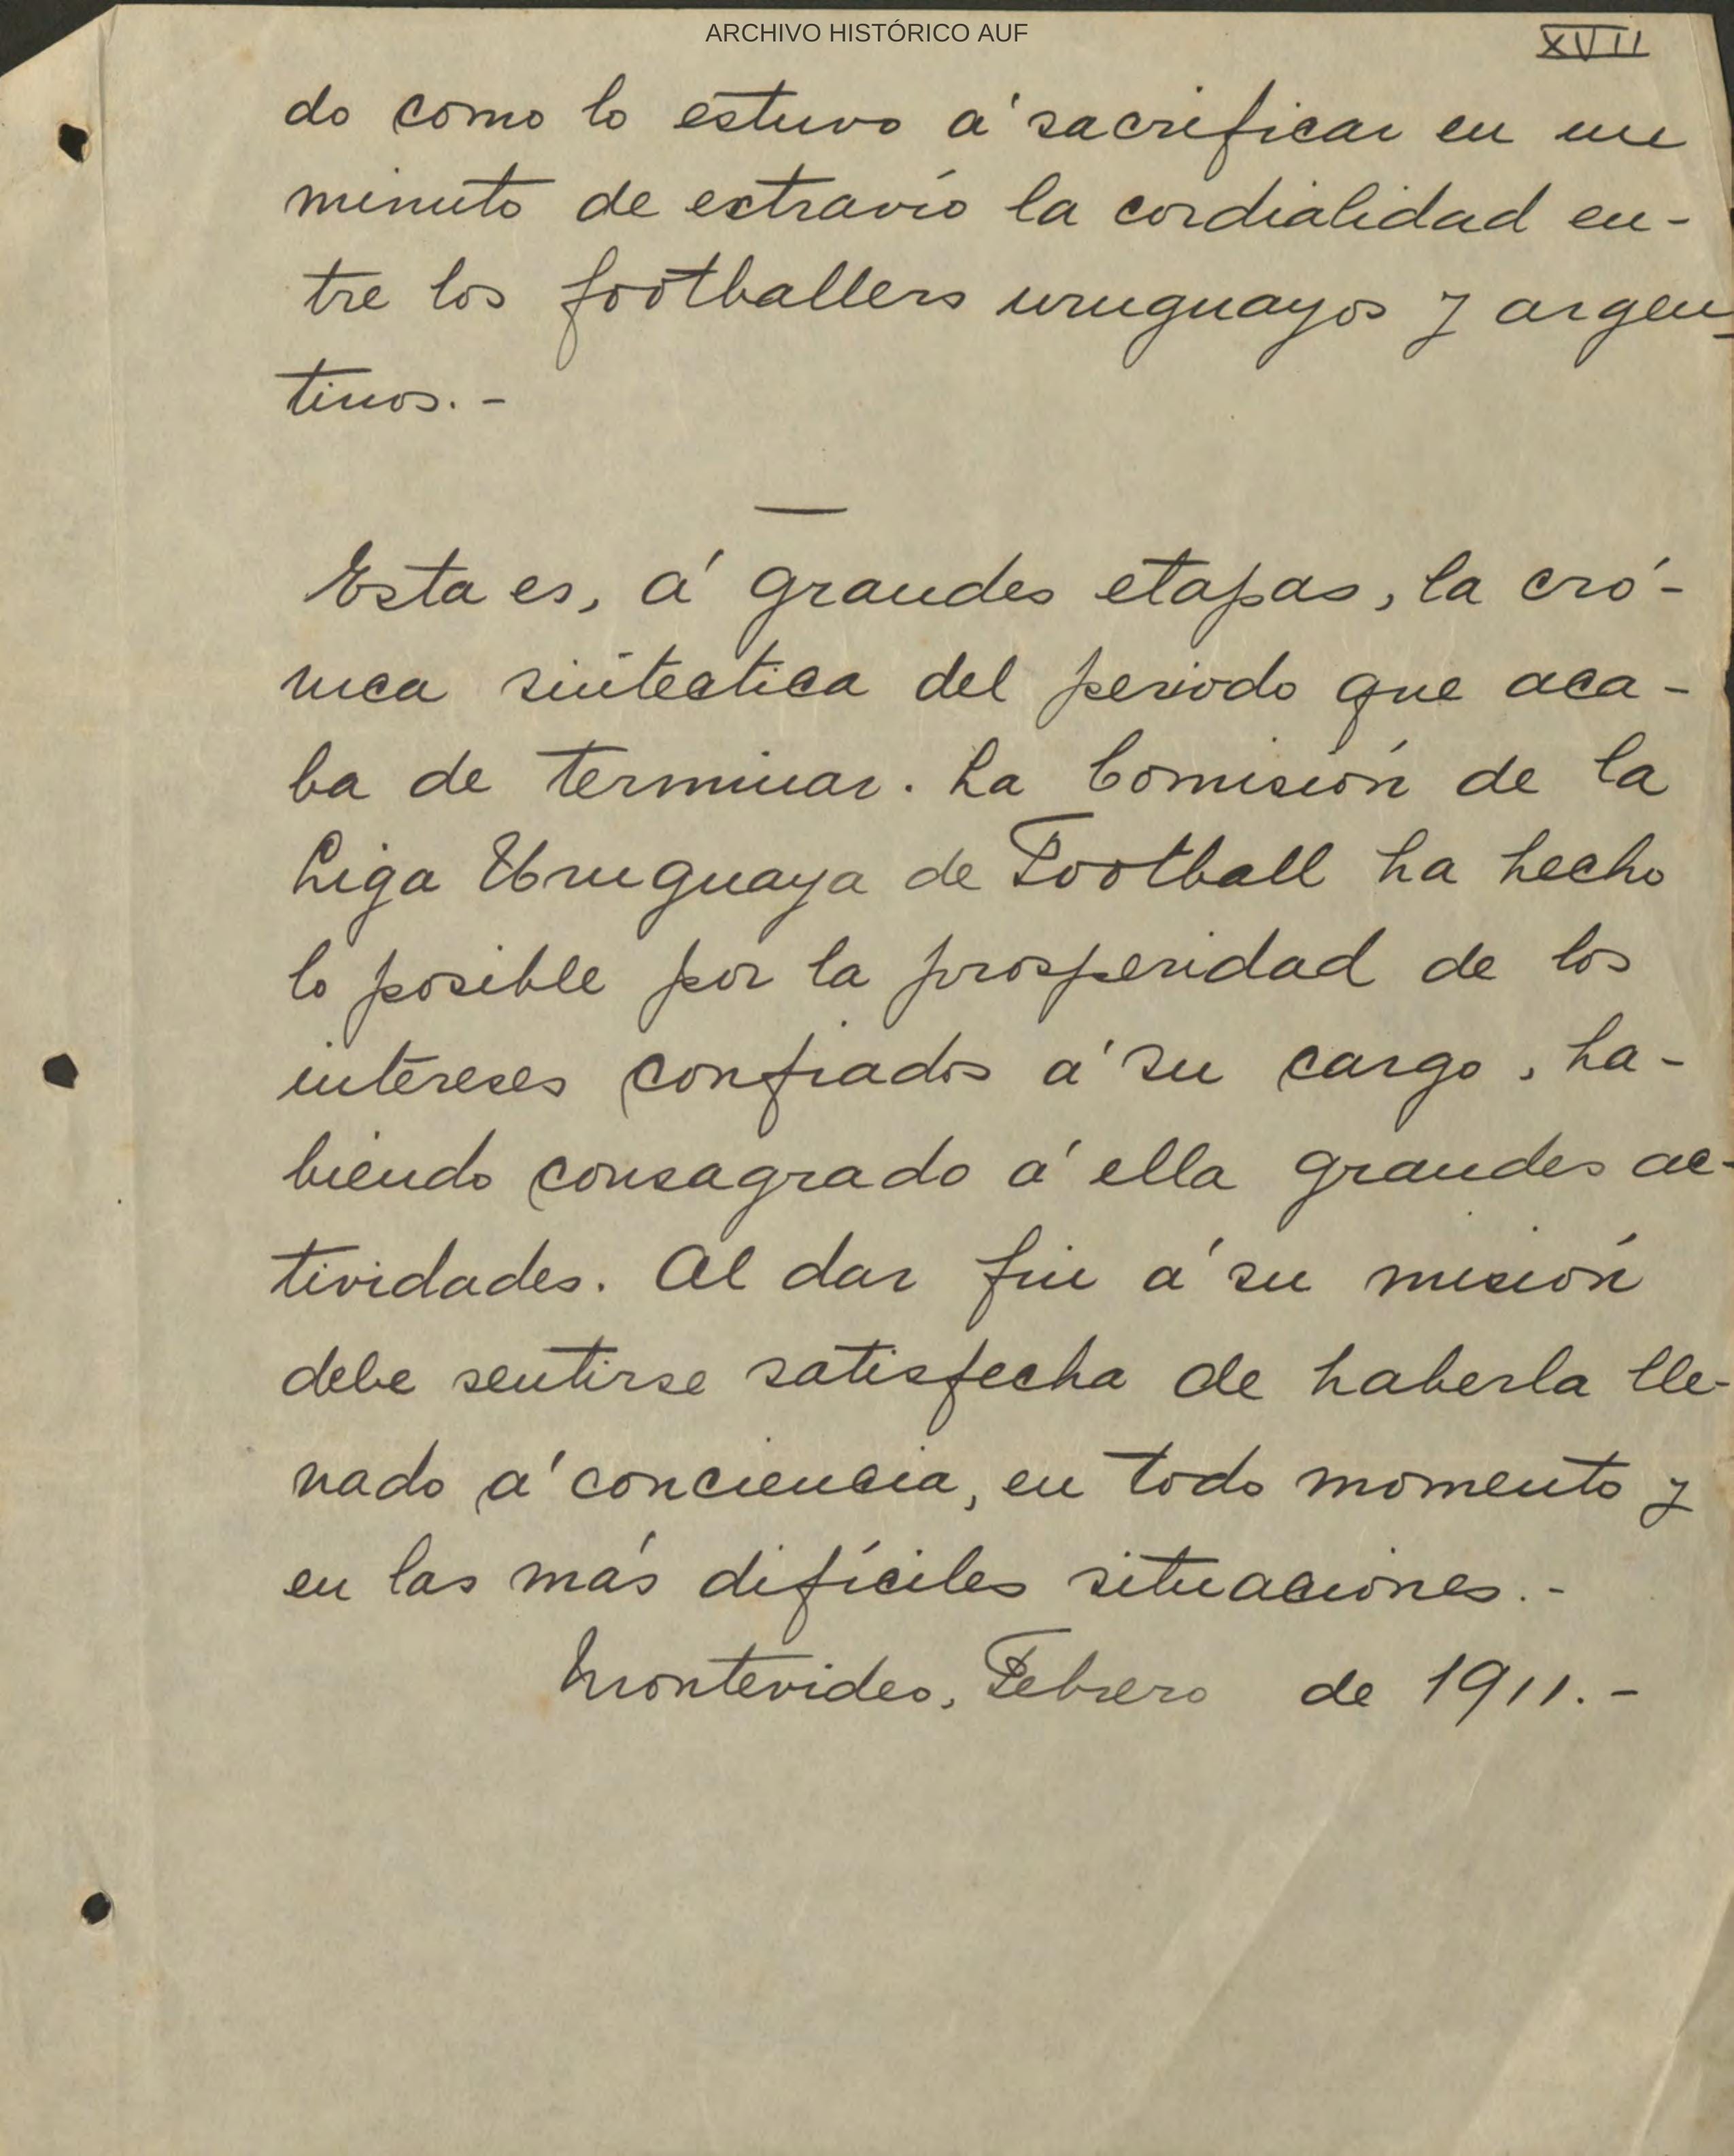 ARCHIVO HISTÓRICO AUF
XVII
do como lo estuvo á sacrificar en un
minuto de extravío la cordialidad en-
tre los footballers uruguayos y argen-
tinos.-
Esta es, á grandes etapas, la cró-
nica sintectica del periodo que aca-
ba de terminar. La Comisión de la
Liga Uruguaya de Football ha hecho
lo posible por la prosperidad de los
intereses confiados á su cargo, ha-
biendo consagrado á ella grandes ac-
tividades. Al dar fin á su misión
debe sentirse satisfecha de haberla lle-
nado á conciencia, en todo momento y
en las más difíciles situaciones.-
Montevideo, Febrero de 1911.-